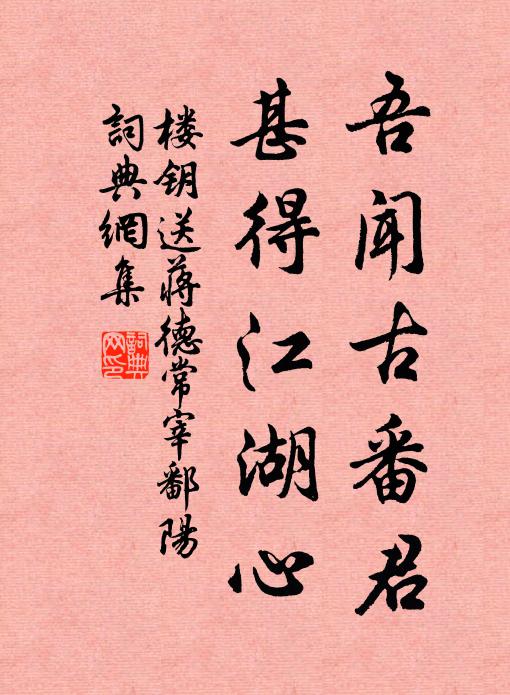 吾闻古番君
甚得江湖心
楼钥送蒋德常宰鄱陽
詞典網集
詞典网印